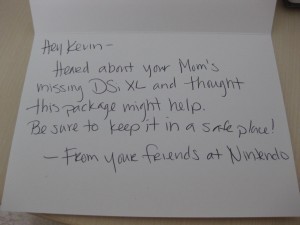 Hey Kevin-
Heard about your Mom's
missing DSi XL and thought
this package might help.
Be sure to keep it in a safe place!
- From your friends at Nintendo